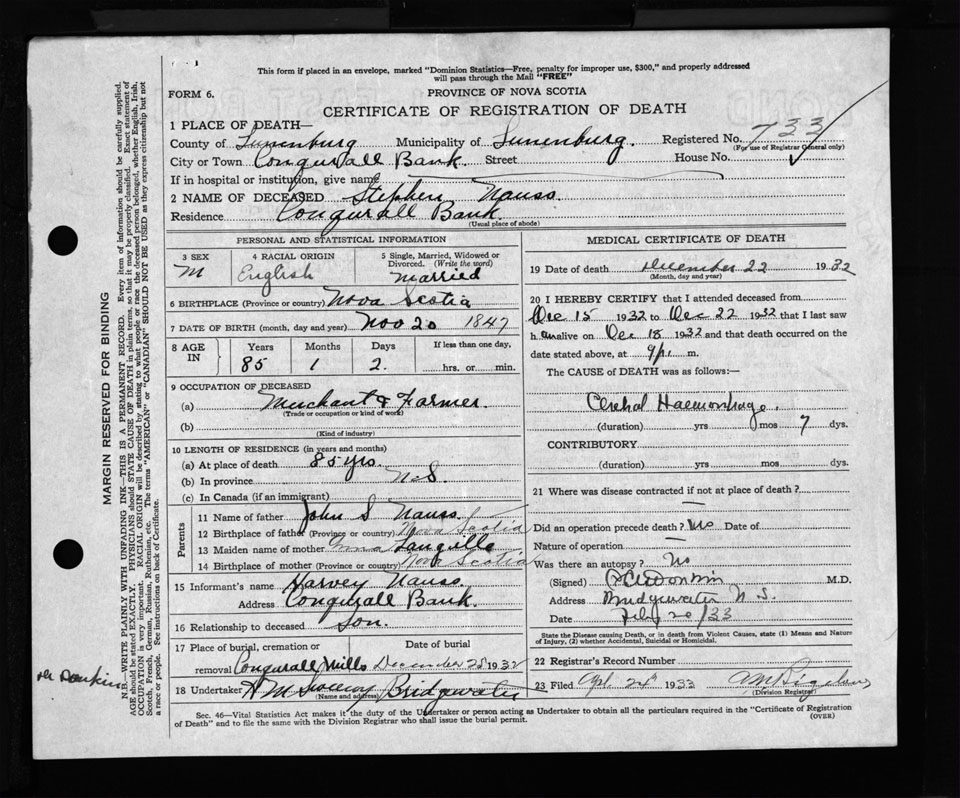 This form if placed in an envelope, marked "Dominion Statistics—Free, penalty for improper use, $300," and properly addressed
will pass through the Mail "FREE"
FORM 6.
PROVINCE OF NOVA SCOTIA
CERTIFICATE OF REGISTRATION OF DEATH
1 PLACE OF DEATH—
County of Lunenburg Municipality of Lunenburg. Registered No. 733
(For use of Registrar General only)
City or Town Conqurall Bank. Street House No.
If in hospital or institution, give name
2 NAME OF DECEASED Stephen Nauss.
Residence Conqurall Bank.
(Usual place of abode)
PERSONAL AND STATISTICAL INFORMATION
3 SEX M
4 RACIAL ORIGIN English
5 Single, Married, Widowed or Divorced. (Write the word) Married
6 BIRTHPLACE (Province or country) Nova Scotia
7 DATE OF BIRTH (month, day and year) Nov 20 1847
8 AGE IN Years Months Days If less than one day,
85 1 2. hrs. or min.
9 OCCUPATION OF DECEASED
(a) Merchant & Farmer.
(Trade or occupation or kind of work)
(b)
(Kind of industry)
10 LENGTH OF RESIDENCE (in years and months)
(a) At place of death 85 yrs.
(b) In province N.S.
(c) In Canada (if an immigrant)
Parents
11 Name of father John S Nauss
12 Birthplace of father (Province or country) Nova Scotia
13 Maiden name of mother Langille
14 Birthplace of mother (Province or country) Nova Scotia
15 Informant's name Harvey Nauss
Address Conqurall Bank.
16 Relationship to deceased Son.
17 Place of burial, cremation or Date of burial
removal Conqurall Mills December 1932
18 Undertaker Bridgewater
(Name and address)
MEDICAL CERTIFICATE OF DEATH
19 Date of death December 22 1932
(Month, day and year)
20 I HEREBY CERTIFY that I attended deceased from
Dec 15 1932 to Dec 22 1932 that I last saw
h alive on Dec 18 1932 and that death occurred on
date stated above, at 9 p. m.
The CAUSE of DEATH was as follows:—
Cerebral Haemorrhage.
(duration) yrs mos 7 dys.
CONTRIBUTORY
(duration) yrs mos dys.
21 Where was disease contracted if not at place of death?
—
Did an operation precede death? No Date of
Nature of operation —
Was there an autopsy? No
(Signed) M.D.
Address Bridgewater N.S.
Date Feby 20/33
State the Disease causing Death, or in death from Violent Causes, state (1) Means and Nature
of Injury, (2) whether Accidental, Suicidal or Homicidal.
22 Registrar's Record Number
23 Filed 1933
(Division Registrar)
Sec. 46—Vital Statistics Act makes it the duty of the Undertaker or person acting as Undertaker to obtain all the particulars required in the "Certificate of Registration
of Death" and to file the same with the Division Registrar who shall issue the burial permit.
(OVER)
MARGIN RESERVED FOR BINDING
N.B.—WRITE PLAINLY WITH UNFADING INK—THIS IS A PERMANENT RECORD. Every item of information should be carefully supplied.
AGE should be stated EXACTLY. PHYSICIANS should STATE CAUSE OF DEATH in plain terms, so that it may be properly classified. Exact statement of
OCCUPATION is very important. RACIAL ORIGIN will be described by stating to what people or race the deceased person belonged, whether English, Irish,
Scotch, French, German, Russian, Ruthenian, etc. The terms "AMERICAN" or "CANADIAN" SHOULD NOT BE USED as they express citizenship but not
a race or people. See instructions on back of Certificate.